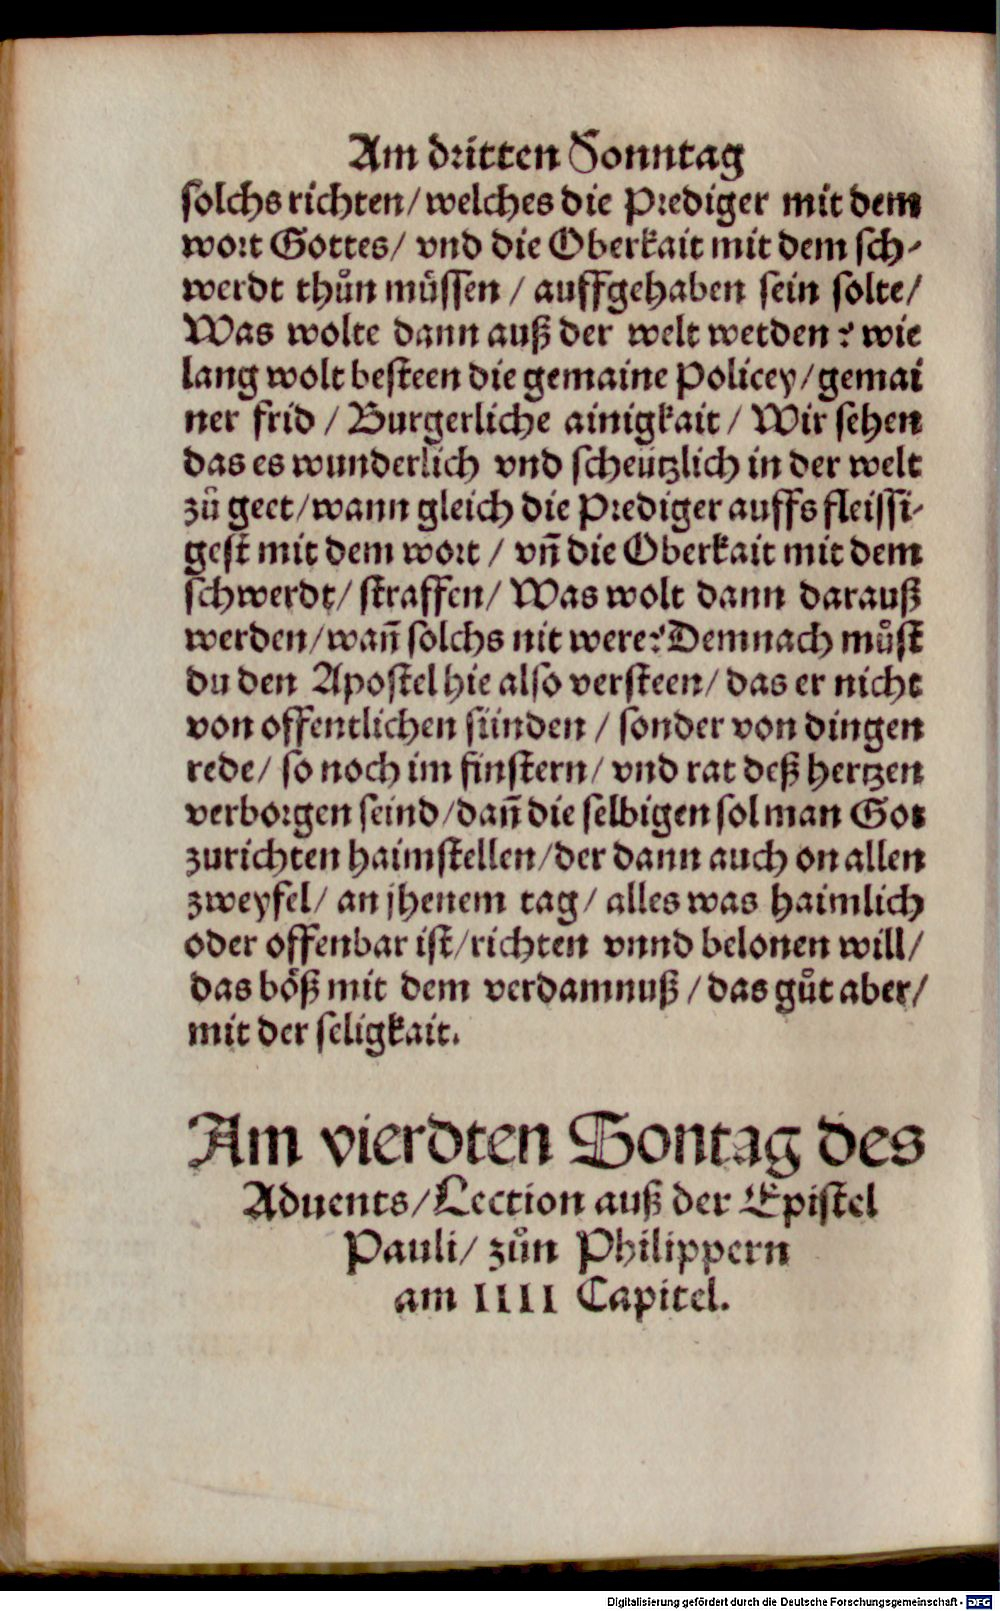 Am dritten Sonntag
solchs richten/ welches die Prediger mit dem
wort Gottes/ vnd die Oberkait mit dem sch-
werdt thůn müssen / auffgehaben sein solte/
Was wolte dann auß der welt werden? wie
lang wolt besteen die gemaine Policey/ gemai
ner frid / Burgerliche ainigkait / Wir sehen
das es wunderlich vnd scheützlich in der welt
zů geet/ wann gleich die Prediger auffs fleissi-
gest mit dem wort / vñ die Oberkait mit dem
schwerdt/ straffen/ Was wolt dann darauß
werden/ wañ solchs nit were? Demnach můst
du den Apostel hie also versteen/ das er nicht
von offentlichen sünden / sonder von dingen
rede/ so noch im finstern/ vnd rat deß hertzen
verborgen seind/ dañ die selbigen sol man Got
zurichten haimstellen/ der dann auch on allen
zweyfel/ an jhenem tag/ alles was haimlich
oder offenbar ist/ richten vnnd belonen will/
das böß mit dem verdamnuß / das gůt aber/
mit der seligkait.
Am vierdten Sontag des
Aduents/ Lection auß der Epistel
Pauli/ zůn Philippern
am IIII Capitel.
Digitalisierung gefördert durch die Deutsche Forschungsgemeinschaft - DFG